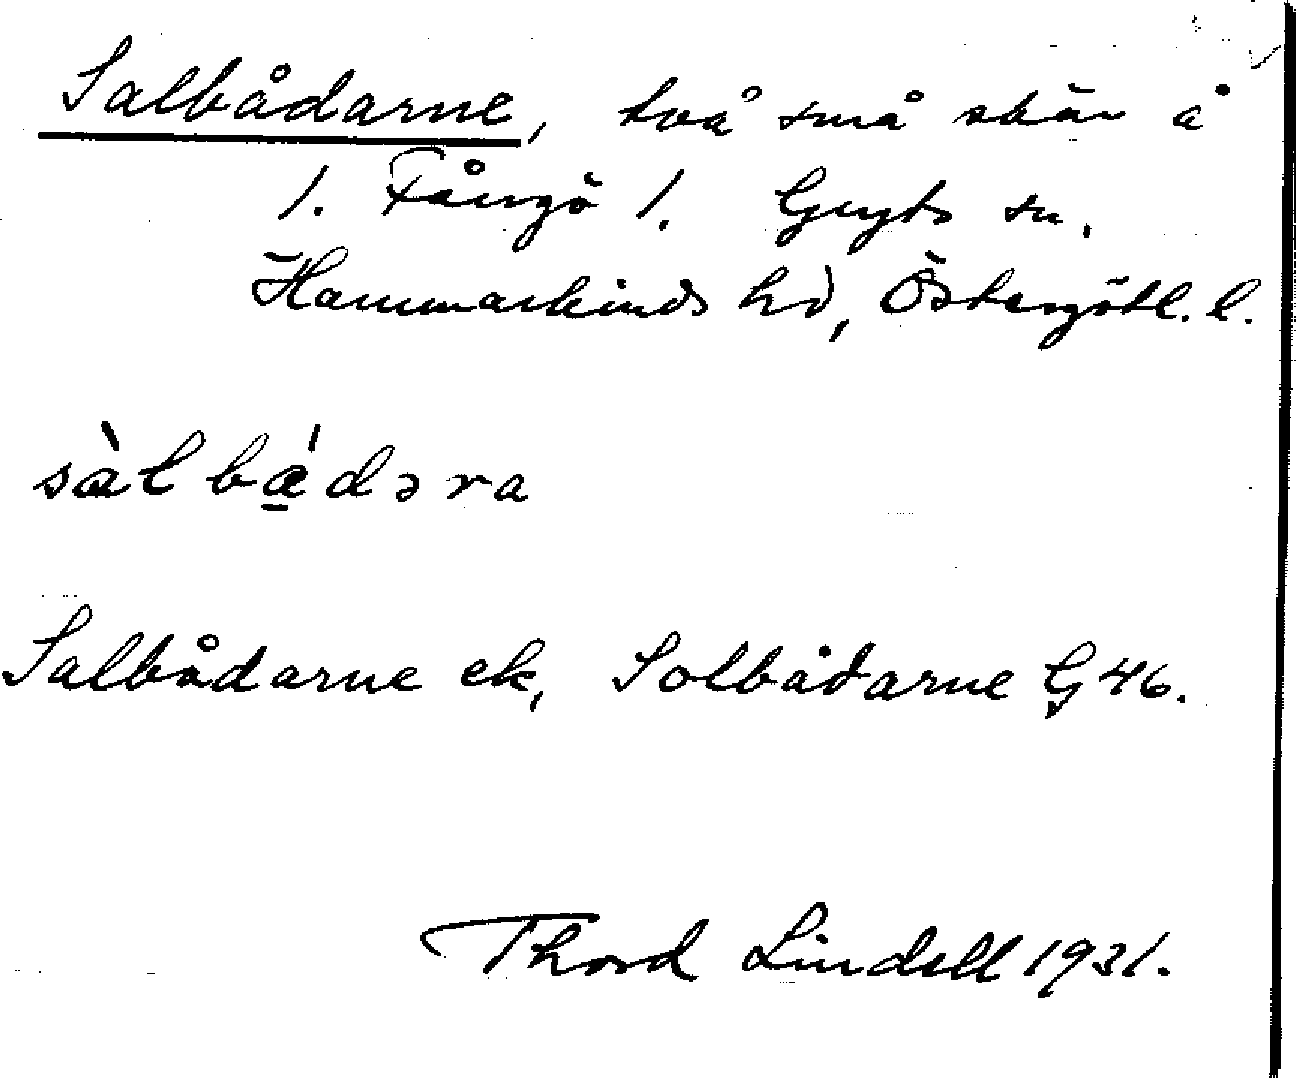 Salbådarne, två små skär å
1. Fångö 1. Gryts sn.
Hammarkinds hd, Östergötl. l.
sàlbǻdəra
Salbådarne ek, Solbådarne G 46.
Thord Lindell 1931.